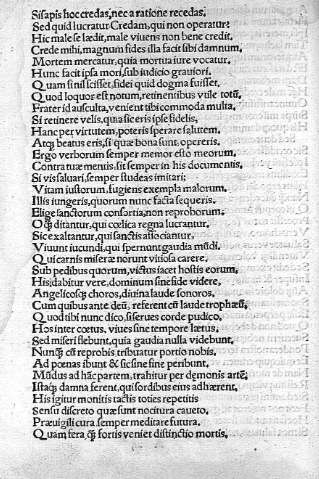 Si sapis hoc credas, nec a ratione recedas.
Sed quid lucratur Credam, qui non operatur?
Hic male se lædit, male viuens non bene credit.
Crede mihi, magnum fides illa facit sibi damnum.
Mortem mercatur, quia mortua iure vocatur.
Hunc facit ipsa mori, sub iudicio grauiori.
Quam si nil scisset, fidei quid dogna fuisset.
Quod loquor est notum, retinentibus vile totũ.
Frater id ausculta, venient tibi commoda multa.
Si retinere velis, quia sic eris ipse fidelis.
Hanc per virtutem, poteris sperare salutem.
Atq; beatus eris, si quæ bona sunt, opereris.
Ergo verborum semper memor esto meorum.
Contra tuæ menuis, sit semper in his documentis.
Si vis saluari, semper studeas imitari;
Vitam iustorum, fugiens exempla malorum.
Illis iungeris, quorum nunc facta sequeris.
Elige sanctorum consortia, non reproborum.
O q̃ ditantur, qui cœlica regna lucrantur.
Sic exaltantur, qui sanctis associantur.
Viuunt iucundi, qui spernunt gaudia mũdi.
Qui carnis miseræ norunt vitiosa carere.
Sub pedibus quorum, victus iacet hostis eorum.
His dabitur vere, dominum sine fide videre.
Angelicosq; choros, diuina laude sonoros.
Cum quibus ante deũ, referent cũ laude trophæũ.
Quod tibi nunc dico, si serues corde pudico,
Hos inter cœtus, viues sine tempore lætus.
Sed miseri flebunt, quia gaudia nulla videbunt.
Nunq̃ cũ reprobis tribuatur portio nobis.
Ad pœnas ibunt & sic sine fine peribunt.
Mũdus ad hãc partem, trahitur per demonis artẽ.
Istaq; damna ferent, qui sordibus eius adhærent.
His igitur monitis tactis toties repetitis
Sensu discreto quæ sunt nocitura caueto.
Præuigili cura semper meditare futura.
Quam fera q̃ fortis veniet distinctio mortis.